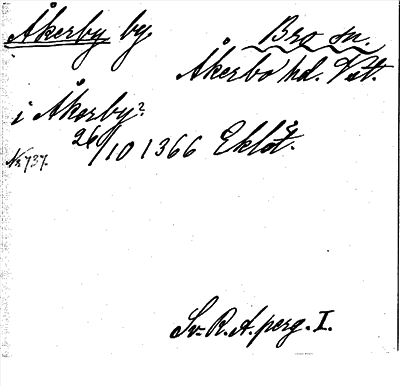 Åkerby by, Bro sn.
Åkerbo hd. Vstm.
i Åkerby?
26/10 1366 Eklöf.
Nr 737.
Sv. R. A. perg. I.